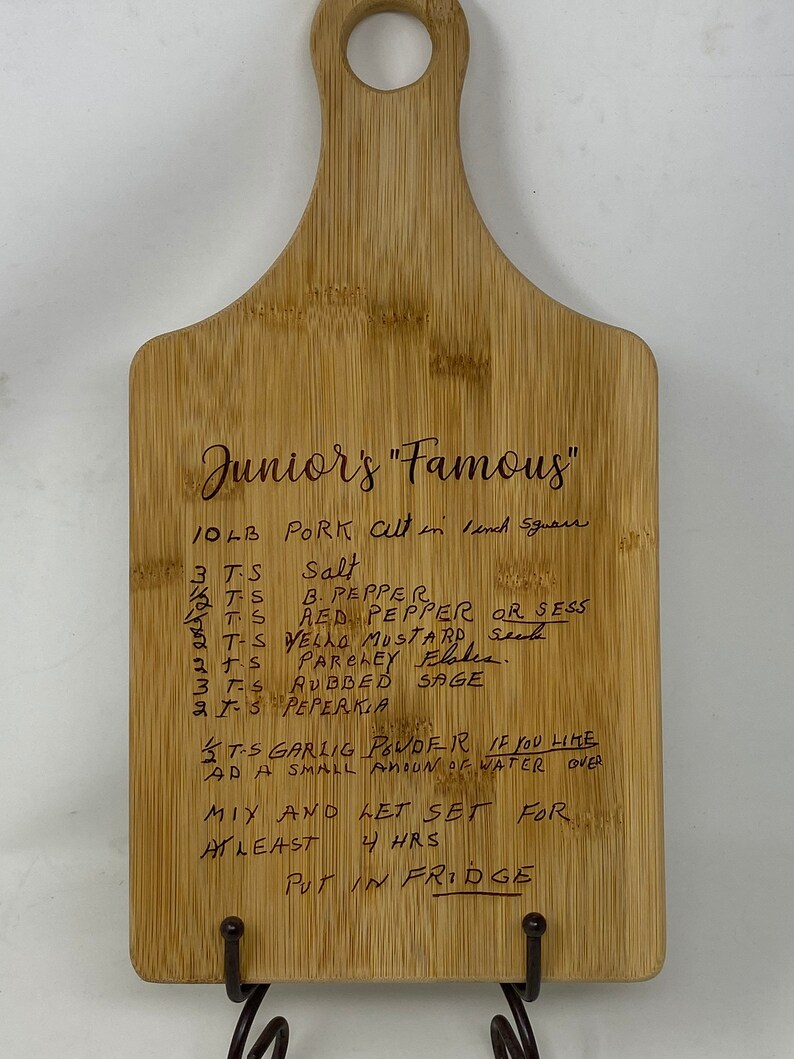 Junior's "Famous"
10 LB PORK Cut in 1 inch Squars
3 T-S Salt
1/2 T-S B. PEPPER
1/2 T-S RED PEPPER OR SESS
2 T-S YELLO MUSTARD Seeds
2 T-S PARCLEY Flakes.
3 T-S RUBBED SAGE
2 T-S PEPERKIA
1/2 T-S GARLIG POWDER IF YOU LIKE
AD A SMALL AMOUN OF WATER OVER
MIX AND LET SET FOR
AT LEAST 4 HRS
PUT IN FRIDGE